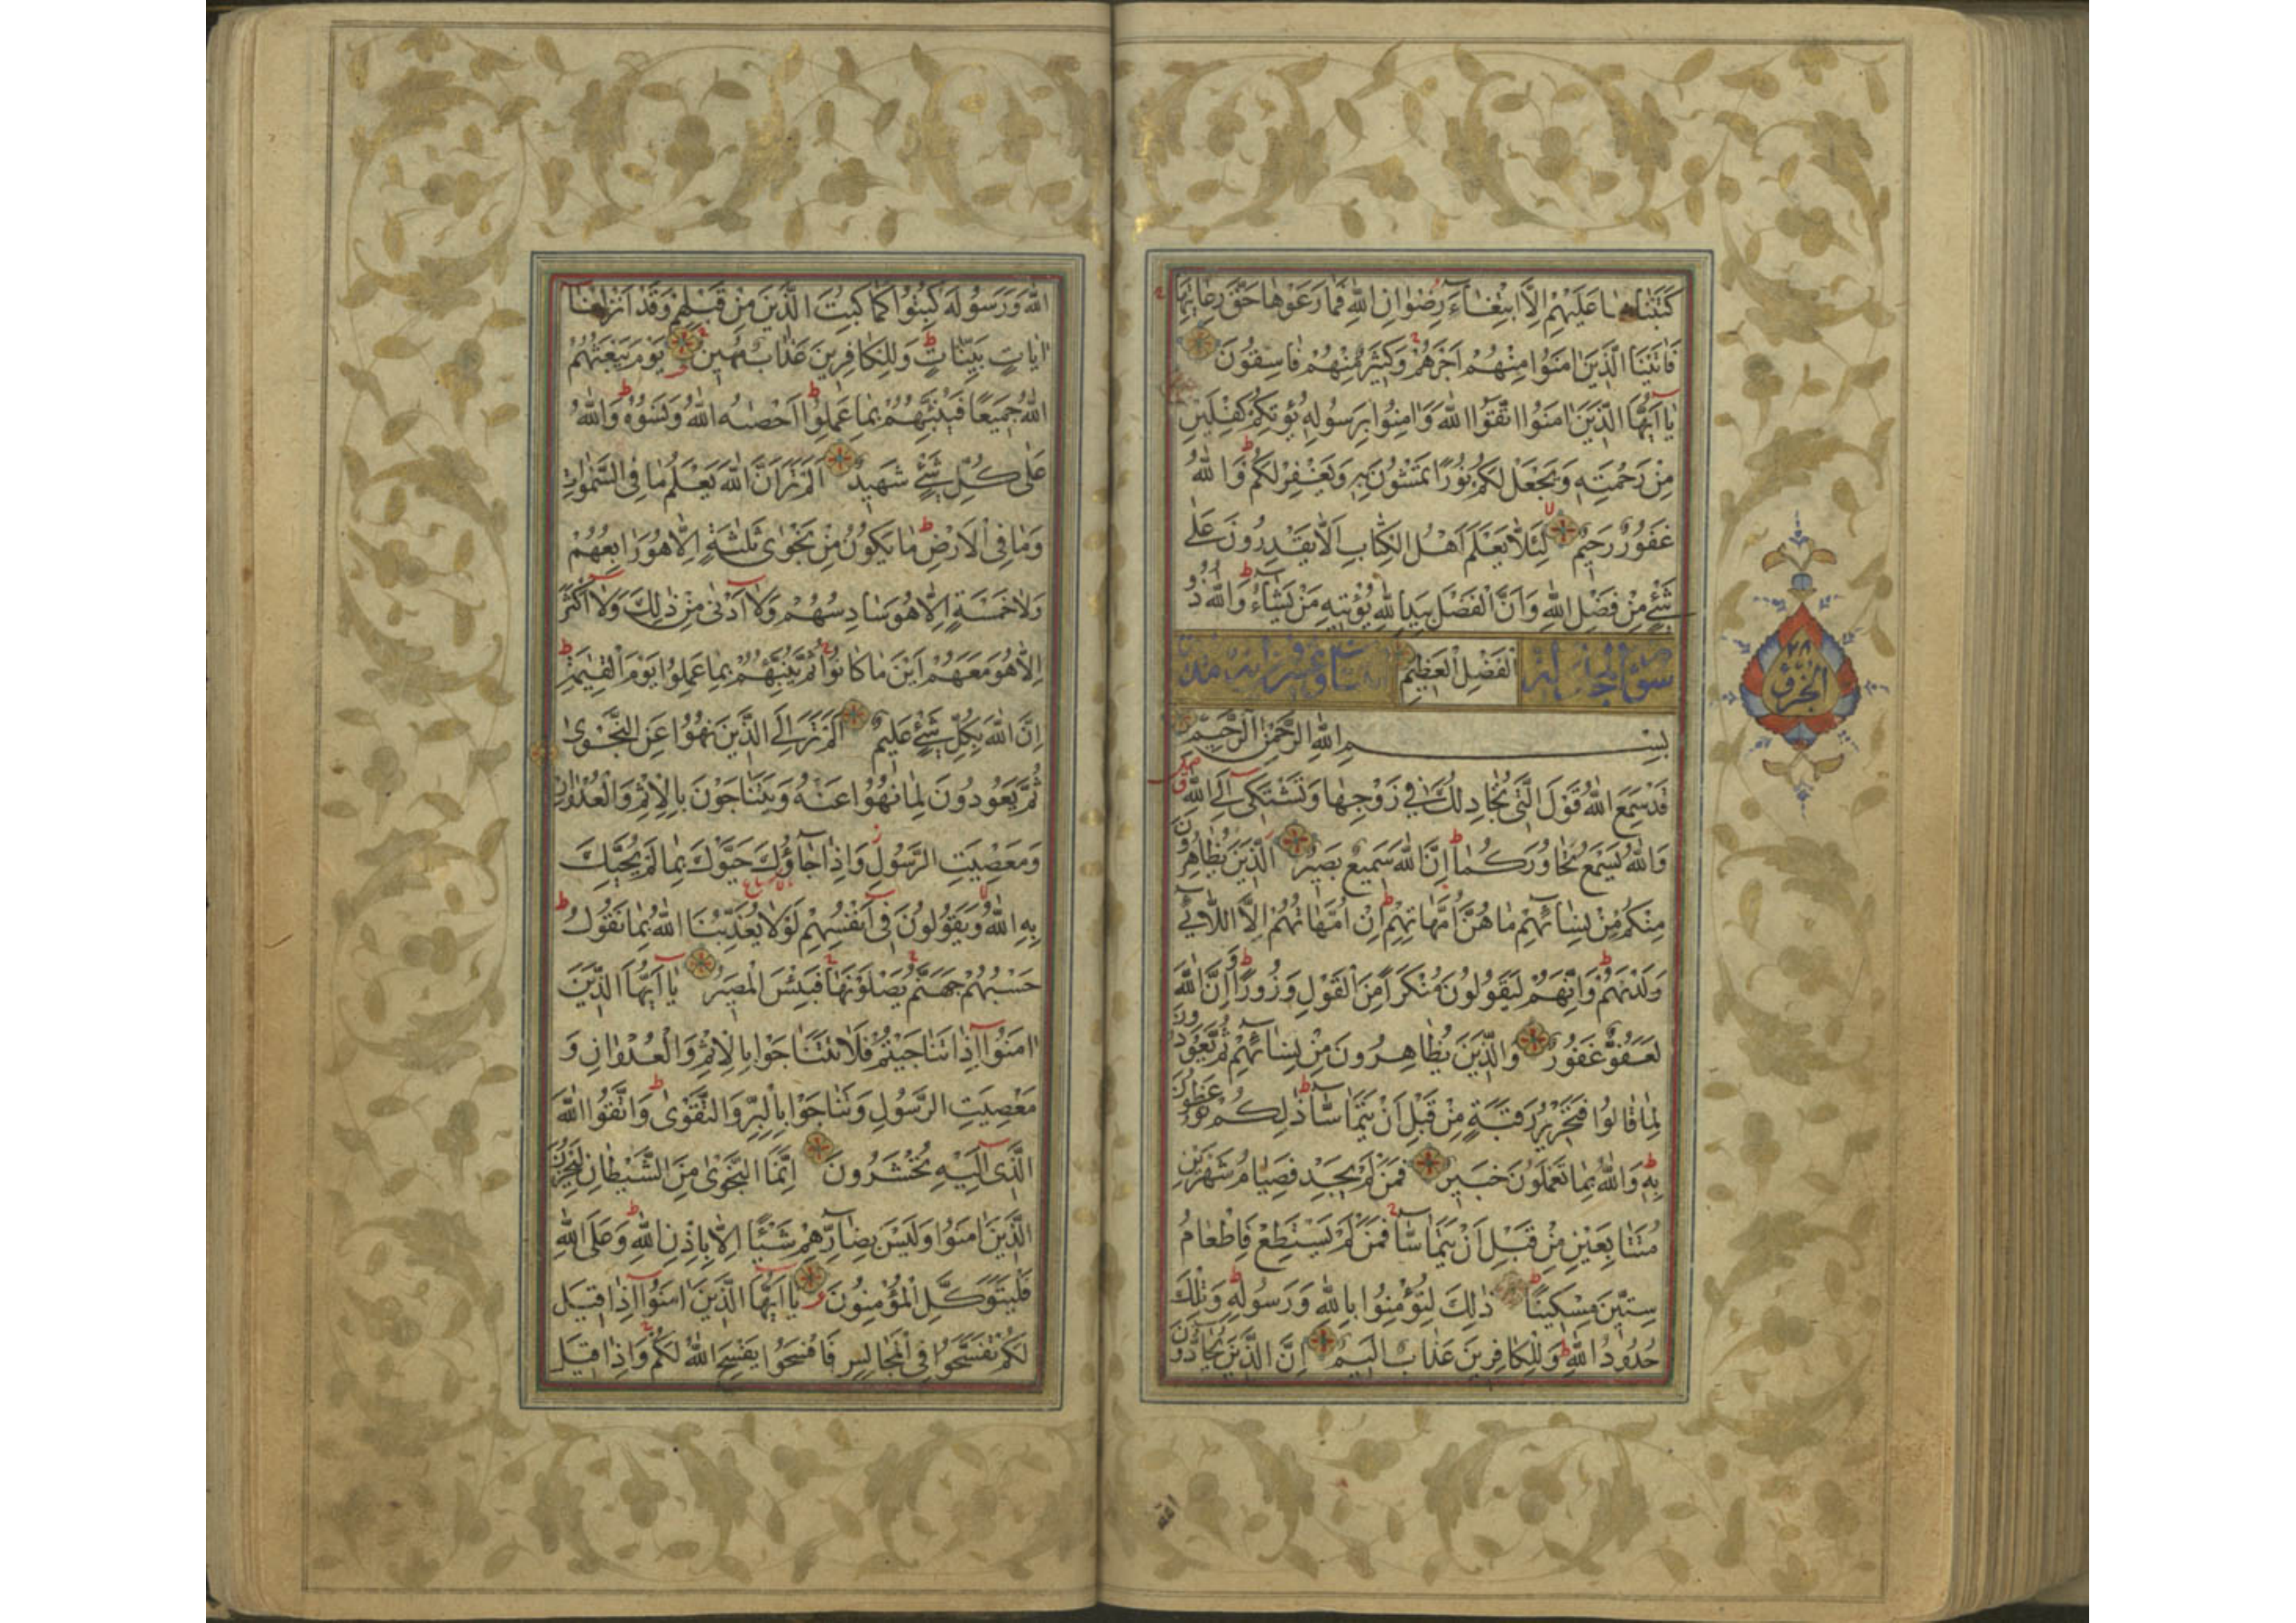 كَتَبْنَاهَا عَلَيْهِمْ اِلَّا ابْتِغَاءَ رِضْوَانِ اللّٰهِ فَمَا رَعَوْهَا حَقَّ رِعَايَتِهَا
فَاٰتَيْنَا الَّذِينَ اٰمَنُوا مِنْهُمْ اَجْرَهُمْ وَكَثِيرٌ مِنْهُمْ فَاسِقُونَ
يَا اَيُّهَا الَّذِينَ اٰمَنُوا اتَّقُوا اللّٰهَ وَاٰمِنُوا بِرَسُولِهِ يُؤْتِكُمْ كِفْلَيْنِ
مِنْ رَحْمَتِهِ وَيَجْعَلْ لَكُمْ نُورًا تَمْشُونَ بِهِ وَيَغْفِرْ لَكُمْ وَاللّٰهُ
غَفُورٌ رَحِيمٌ لِئَلَّا يَعْلَمَ اَهْلُ الْكِتَابِ اَلَّا يَقْدِرُونَ عَلٰى
شَيْءٍ مِنْ فَضْلِ اللّٰهِ وَاَنَّ الْفَضْلَ بِيَدِ اللّٰهِ يُؤْتِيهِ مَنْ يَشَاءُ وَاللّٰهُ ذُو
سورة المجادلة الْفَضْلِ الْعَظِيمِ
بِسْمِ اللّٰهِ الرَّحْمٰنِ الرَّحِيمِ
قَدْ سَمِعَ اللّٰهُ قَوْلَ الَّتِي تُجَادِلُكَ فِي زَوْجِهَا وَتَشْتَكِي اِلَى اللّٰهِ
وَاللّٰهُ يَسْمَعُ تَحَاوُرَكُمَا اِنَّ اللّٰهَ سَمِيعٌ بَصِيرٌ اَلَّذِينَ يُظَاهِرُونَ
مِنْكُمْ مِنْ نِسَائِهِمْ مَا هُنَّ اُمَّهَاتِهِمْ اِنْ اُمَّهَاتُهُمْ اِلَّا اللَّائِي
وَلَدْنَهُمْ وَاِنَّهُمْ لَيَقُولُونَ مُنْكَرًا مِنَ الْقَوْلِ وَزُورًا وَاِنَّ اللّٰهَ
لَعَفُوٌّ غَفُورٌ وَالَّذِينَ يُظَاهِرُونَ مِنْ نِسَائِهِمْ ثُمَّ يَعُودُونَ
لِمَا قَالُوا فَتَحْرِيرُ رَقَبَةٍ مِنْ قَبْلِ اَنْ يَتَمَاسَّا ذٰلِكُمْ تُوعَظُونَ
بِهِ وَاللّٰهُ بِمَا تَعْمَلُونَ خَبِيرٌ فَمَنْ لَمْ يَجِدْ فَصِيَامُ شَهْرَيْنِ
مُتَتَابِعَيْنِ مِنْ قَبْلِ اَنْ يَتَمَاسَّا فَمَنْ لَمْ يَسْتَطِعْ فَاِطْعَامُ
سِتِّينَ مِسْكِينًا ذٰلِكَ لِتُؤْمِنُوا بِاللّٰهِ وَرَسُولِهِ وَتِلْكَ
حُدُودُ اللّٰهِ وَلِلْكَافِرِينَ عَذَابٌ اَلِيمٌ اِنَّ الَّذِينَ يُحَادُّونَ
الجزو
٢٨
اللّٰهَ وَرَسُولَهُ كُبِتُوا كَمَا كُبِتَ الَّذِينَ مِنْ قَبْلِهِمْ وَقَدْ اَنْزَلْنَا
اٰيَاتٍ بَيِّنَاتٍ وَلِلْكَافِرِينَ عَذَابٌ مُهِينٌ يَوْمَ يَبْعَثُهُمُ
اللّٰهُ جَمِيعًا فَيُنَبِّئُهُمْ بِمَا عَمِلُوا اَحْصٰيهُ اللّٰهُ وَنَسُوهُ وَاللّٰهُ
عَلٰى كُلِّ شَيْءٍ شَهِيدٌ اَلَمْ تَرَ اَنَّ اللّٰهَ يَعْلَمُ مَا فِي السَّمٰوَاتِ
وَمَا فِي الْاَرْضِ مَا يَكُونُ مِنْ نَجْوٰى ثَلٰثَةٍ اِلَّا هُوَ رَابِعُهُمْ
وَلَا خَمْسَةٍ اِلَّا هُوَ سَادِسُهُمْ وَلَا اَدْنٰى مِنْ ذٰلِكَ وَلَا اَكْثَرَ
اِلَّا هُوَ مَعَهُمْ اَيْنَ مَا كَانُوا ثُمَّ يُنَبِّئُهُمْ بِمَا عَمِلُوا يَوْمَ الْقِيٰمَةِ
اِنَّ اللّٰهَ بِكُلِّ شَيْءٍ عَلِيمٌ اَلَمْ تَرَ اِلَى الَّذِينَ نُهُوا عَنِ النَّجْوٰى
ثُمَّ يَعُودُونَ لِمَا نُهُوا عَنْهُ وَيَتَنَاجَوْنَ بِالْاِثْمِ وَالْعُدْوَانِ
وَمَعْصِيَتِ الرَّسُولِ وَاِذَا جَاؤُكَ حَيَّوْكَ بِمَا لَمْ يُحَيِّكَ
بِهِ اللّٰهُ وَيَقُولُونَ فِي اَنْفُسِهِمْ لَوْلَا يُعَذِّبُنَا اللّٰهُ بِمَا نَقُولُ
حَسْبُهُمْ جَهَنَّمُ يَصْلَوْنَهَا فَبِئْسَ الْمَصِيرُ يَا اَيُّهَا الَّذِينَ
اٰمَنُوا اِذَا تَنَاجَيْتُمْ فَلَا تَتَنَاجَوْا بِالْاِثْمِ وَالْعُدْوَانِ وَ
مَعْصِيَتِ الرَّسُولِ وَتَنَاجَوْا بِالْبِرِّ وَالتَّقْوٰى وَاتَّقُوا اللّٰهَ
الَّذِي اِلَيْهِ تُحْشَرُونَ اِنَّمَا النَّجْوٰى مِنَ الشَّيْطَانِ لِيَحْزُنَ
الَّذِينَ اٰمَنُوا وَلَيْسَ بِضَارِّهِمْ شَيْئًا اِلَّا بِاِذْنِ اللّٰهِ وَعَلَى اللّٰهِ
فَلْيَتَوَكَّلِ الْمُؤْمِنُونَ يَا اَيُّهَا الَّذِينَ اٰمَنُوا اِذَا قِيلَ
لَكُمْ تَفَسَّحُوا فِي الْمَجَالِسِ فَافْسَحُوا يَفْسَحِ اللّٰهُ لَكُمْ وَاِذَا قِيلَ